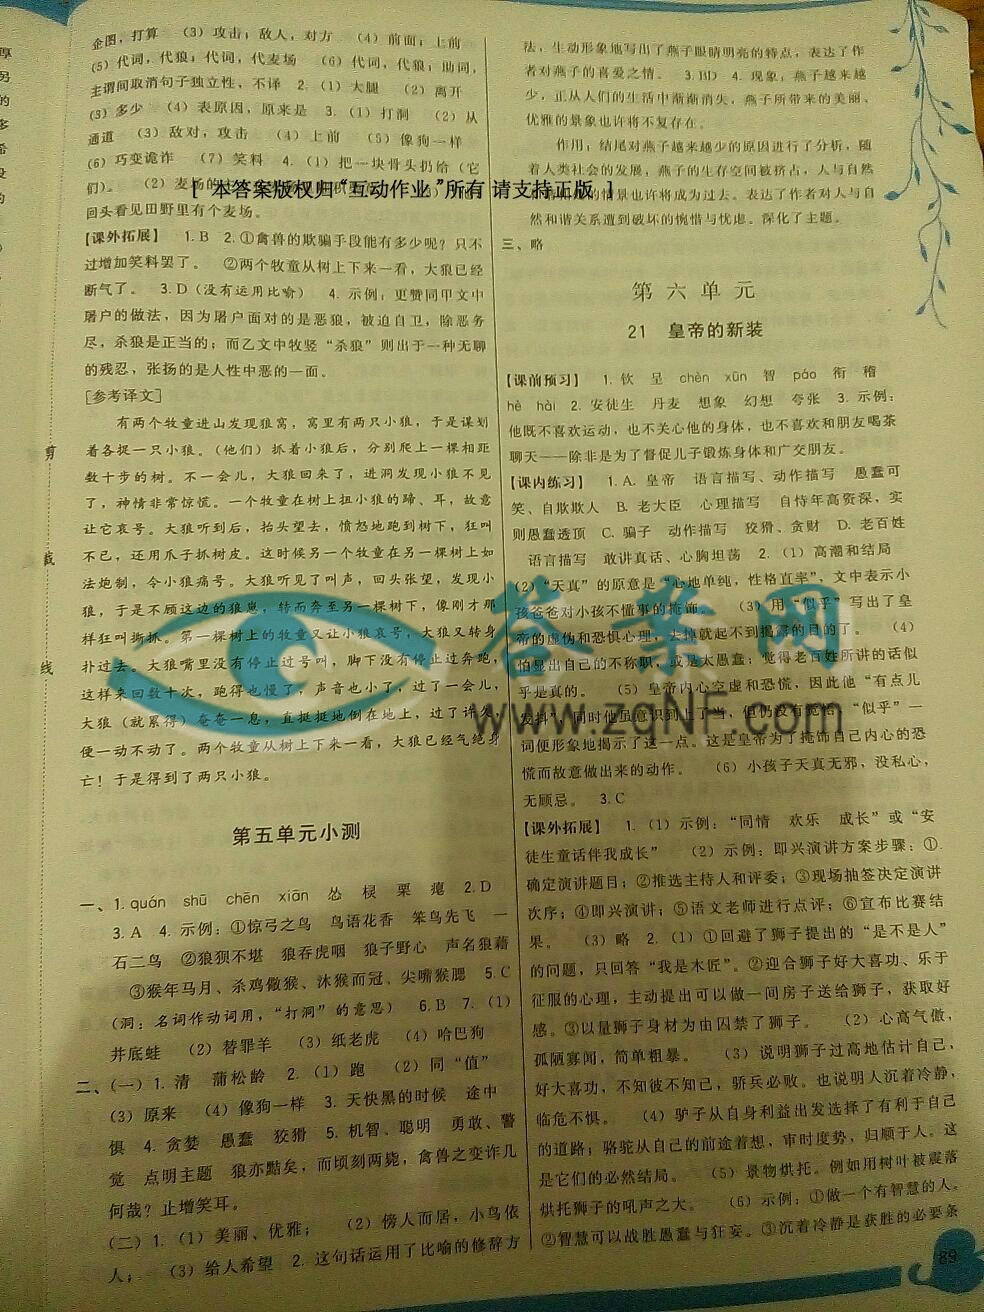 企图,打算 (3)攻击;敌人,对方 (4)前面;上前
(5)代词,代狼;代词,代麦场 (6)代词,代狼;助词,
主谓间取消句子独立性,不译 2.(1)大腿 (2)离开
(3)多少 (4)表原因,原来是 3.(1)打洞 (2)从
通道 (3)敌对,攻击 (4)上前 (5)像狗一样
(6)巧变诡诈 (7)笑料 4.(1)把一块骨头扔给(它
们)。 (2)麦场
[ 本答案版权归“互动作业”所有 请支持正版 ]
回头看见田野里有个麦场。
【课外拓展】 1.B 2.①禽兽的欺骗手段能有多少呢?只不
过增加笑料罢了。 ②两个牧童从树上下来一看,大狼已经
断气了。 3.D(没有运用比喻) 4.示例:更赞同甲文中
屠户的做法,因为屠户面对的是恶狼,被迫自卫,除恶务
尽,杀狼是正当的;而乙文中牧竖“杀狼”则出于一种无聊
的残忍,张扬的是人性中恶的一面。
[参考译文]
有两个牧童进山发现狼窝,窝里有两只小狼,于是谋划
着各捉一只小狼。(他们)抓着小狼后,分别爬上一棵相距
数十步的树。不一会儿,大狼回来了,进洞发现小狼不见
了,神情非常惊慌。一个牧童在树上扭小狼的蹄、耳,故意
让它哀号。大狼听到后,抬头望去,愤怒地跑到树下,狂叫
不已,还用爪子抓树皮。这时候另一个牧童在另一棵树上如
法炮制,令小狼痛号。大狼听见了叫声,回头张望,发现小
狼,于是不顾这边的狼崽,转而奔至另一棵树下,像刚才那
样狂叫撕抓。第一棵树上的牧童又让小狼哀号,大狼又转身
扑过去。大狼嘴里没有停止过号叫,脚下没有停止过奔跑,
这样来回数十次,跑得也慢了,声音也小了,过了一会儿,
大狼(就累得)奄奄一息,直挺挺地倒在地上,过了许久
便一动不动了。两个牧童从树上下来一看,大狼已经气绝身
亡!于是得到了两只小狼。
第五单元小测
一、1.quán shū chēn xiān 怂 棂 栗 瘪 2.D
3.A 4.示例:①惊弓之鸟 鸟语花香 笨鸟先飞 一
石二鸟 ②狼狈不堪 狼吞虎咽 狼子野心 声名狼藉
③猴年马月、杀鸡儆猴、沐猴而冠、尖嘴猴腮 5.C
(洞:名词作动词用,“打洞”的意思) 6.B 7.(1)
井底蛙 (2)替罪羊 (3)纸老虎 (4)哈巴狗
二、(一)1.清 蒲松龄 2.(1)跑 (2)同“值”
(3)原来 (4)像狗一样 3.天快黑的时候 途中
惧 4.贪婪 愚蠢 狡猾 5.机智、聪明 勇敢、警
觉 点明主题 狼亦黠矣,而顷刻两毙,禽兽之变诈几
何哉?止增笑耳。
(二)1.(1)美丽、优雅; (2)傍人而居,小鸟依
人; (3)给人希望 2.这句话运用了比喻的修辞方
法,生动形象地写出了燕子眼睛明亮的特点,表达了作
者对燕子的喜爱之情。 3.BD 4.现象:燕子越来越
少,正从人们的生活中渐渐消失,燕子所带来的美丽、
优雅的景象也许将不复存在。
作用:结尾对燕子越来越少的原因进行了分析,随
着人类社会的发展,燕子的生存空间被挤占,人与自然
的情景也许将成为过去。表达了作者对人与自
然和谐关系遭到破坏的惋惜与忧虑。深化了主题。
三、略
第六单元
21 皇帝的新装
【课前预习】 1.钦 呈 chèn xūn 智 páo 衔 稽
hè hài 2.安徒生 丹麦 想象 幻想 夸张 3.示例:
他既不喜欢运动,也不关心他的身体,也不喜欢和朋友喝茶
聊天——除非是为了督促儿子锻炼身体和广交朋友。
【课内练习】 1.A.皇帝 语言描写、动作描写 愚蠢可
笑、自欺欺人 B.老大臣 心理描写 自恃年高资深,实
则愚蠢透顶 C.骗子 动作描写 狡猾、贪财 D.老百姓
语言描写 敢讲真话、心胸坦荡 2.(1)高潮和结局
(2)“天真”的原意是“心地单纯,性格直率”,文中表示小
孩爸爸对小孩不懂事的掩饰。 (3)用“似乎”写出了皇
帝的虚伪和恐惧心理,去掉就起不到揭露的目的了。 (4)
怕显出自己的不称职,或是太愚蠢;觉得老百姓所讲的话似
乎是真的。 (5)皇帝内心空虚和恐慌,因此他“有点儿
发抖”,同时他虽意识到上了当,但仍没有
“似乎”一
词便形象地揭示了这一点。这是皇帝为了掩饰自己内心的恐
慌而故意做出来的动作。 (6)小孩子天真无邪,没私心,
无顾忌。 3.C
【课外拓展】 1.(1)示例:“同情 欢乐 成长”或“安
徒生童话伴我成长” (2)示例:即兴演讲方案步骤:①
确定演讲题目;②推选主持人和评委;③现场抽签决定演讲
次序;④即兴演讲;⑤语文老师进行点评;⑥宣布比赛结
果。 (3)略 2.(1)①回避了狮子提出的“是不是人”
的问题,只回答“我是木匠”。②迎合狮子好大喜功、乐于
征服的心理,主动提出可以做一间房子送给狮子,获取好
感。③以量狮子身材为由囚禁了狮子。 (2)心高气傲,
孤陋寡闻,简单粗暴。 (3)说明狮子过高地估计自己,
好大喜功,不知彼不知己,骄兵必败。也说明人沉着冷静,
临危不惧。 (4)驴子从自身利益出发选择了有利于自己
的道路;骆驼从自己的前途着想,审时度势,归顺于人。这
是它们的必然结局。 (5)景物烘托。例如用树叶被震落
烘托狮子的吼声之大。 (6)示例:①做一个有智慧的人。
②智慧可以战胜愚蠢与狂妄。③沉着冷静是获胜的必要条
89
剪
裁
线
答案网
www.zqNF.com